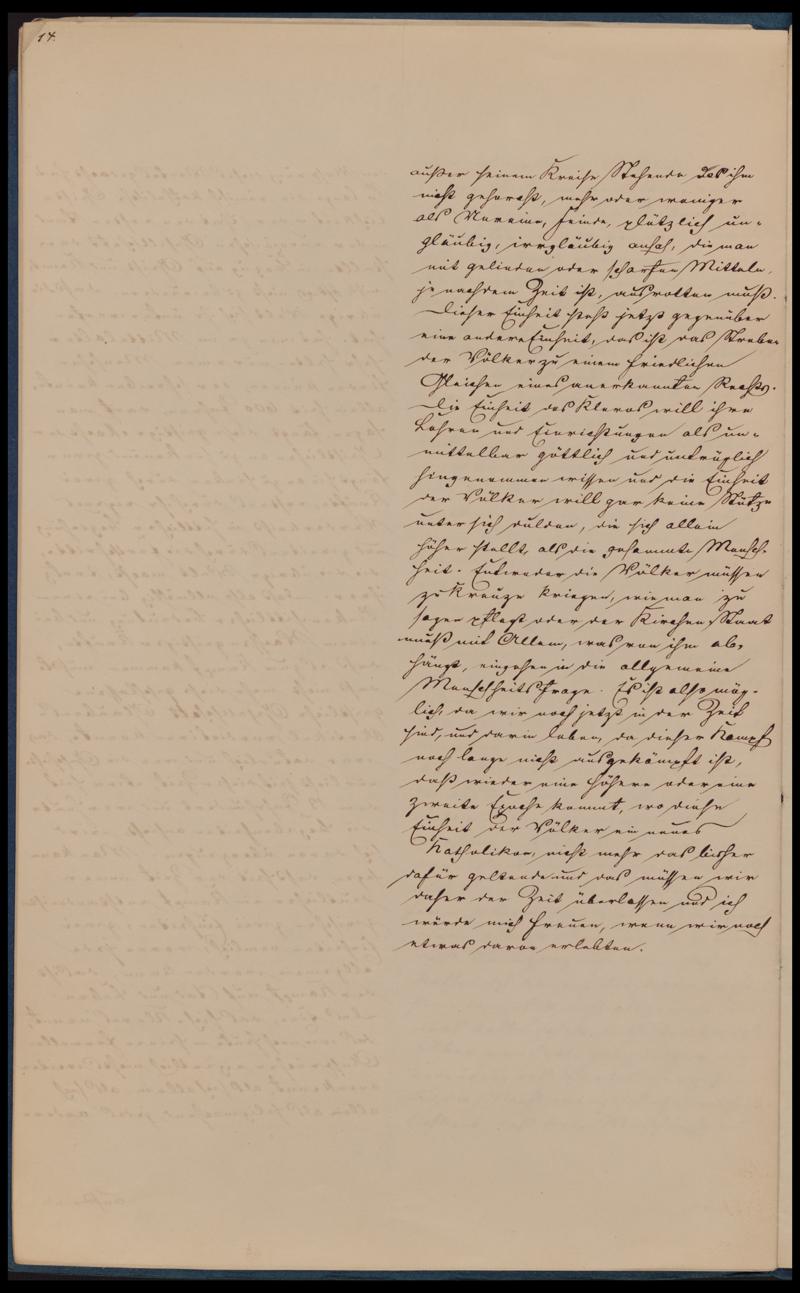 14.
außer seinem Kreise Stehende das ihm
nicht gehorcht, mehr oder weniger
als Unreine, Feinde, plötzlich un-
gläubig, irrgläubig ansah, die man
mit gelinden oder scharfen Mitteln,
je nachdem Zeit ist, ausrotten muß.
Dieser Einheit steht jetzt gegenüber
eine andere Einheit, das ist das Streben
der Völker zu einem friedlichen
Gleichen eines anerkannten Rechts.
Die Einheit des Klerus will ihre
Lehren und Einrichtungen als un-
mittelbar göttlich und untrüglich
hingenommen wissen und die Einheit
der Völker will gar keine Stütze
unter sich dulden, die sich allein
höher stellt, als die gesammte Mensch-
heit. Entweder die Völker müssen
zu Kreuze kriegen, wie man zu
sagen pflegt oder der Kirchen Staat
muß mit Allem, was von ihm ab-
hängt, eingehen in die allgemeine
Menschheitsfrage. Es ist also mög-
lich, da wir noch jetzt in der Zeit
sind, und darin leben, da dieser Kampf
noch lange nicht ausgekämpft ist,
daß wieder eine höhere oder eine
zweite Epoche kommt, wo diese
Einheit der Völker ein neues
Katholikon, nicht mehr das bisher
dafür geltende und das müssen wir
daher der Zeit überlassen und ich
würde mich freuen, wenn wir noch
etwas davon erlebten.